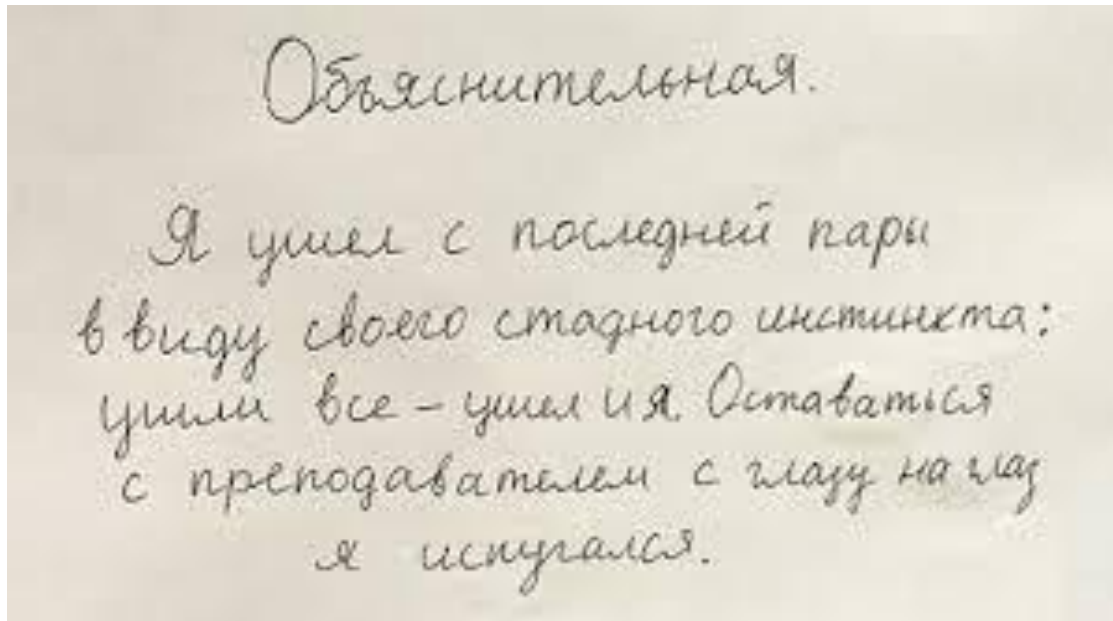 Объяснительная.
Я ушел с последней пары
в виду своего стадного инстинкта:
ушли все – ушел и я. Оставаться
с преподавателем с глазу на глаз
я испугался.